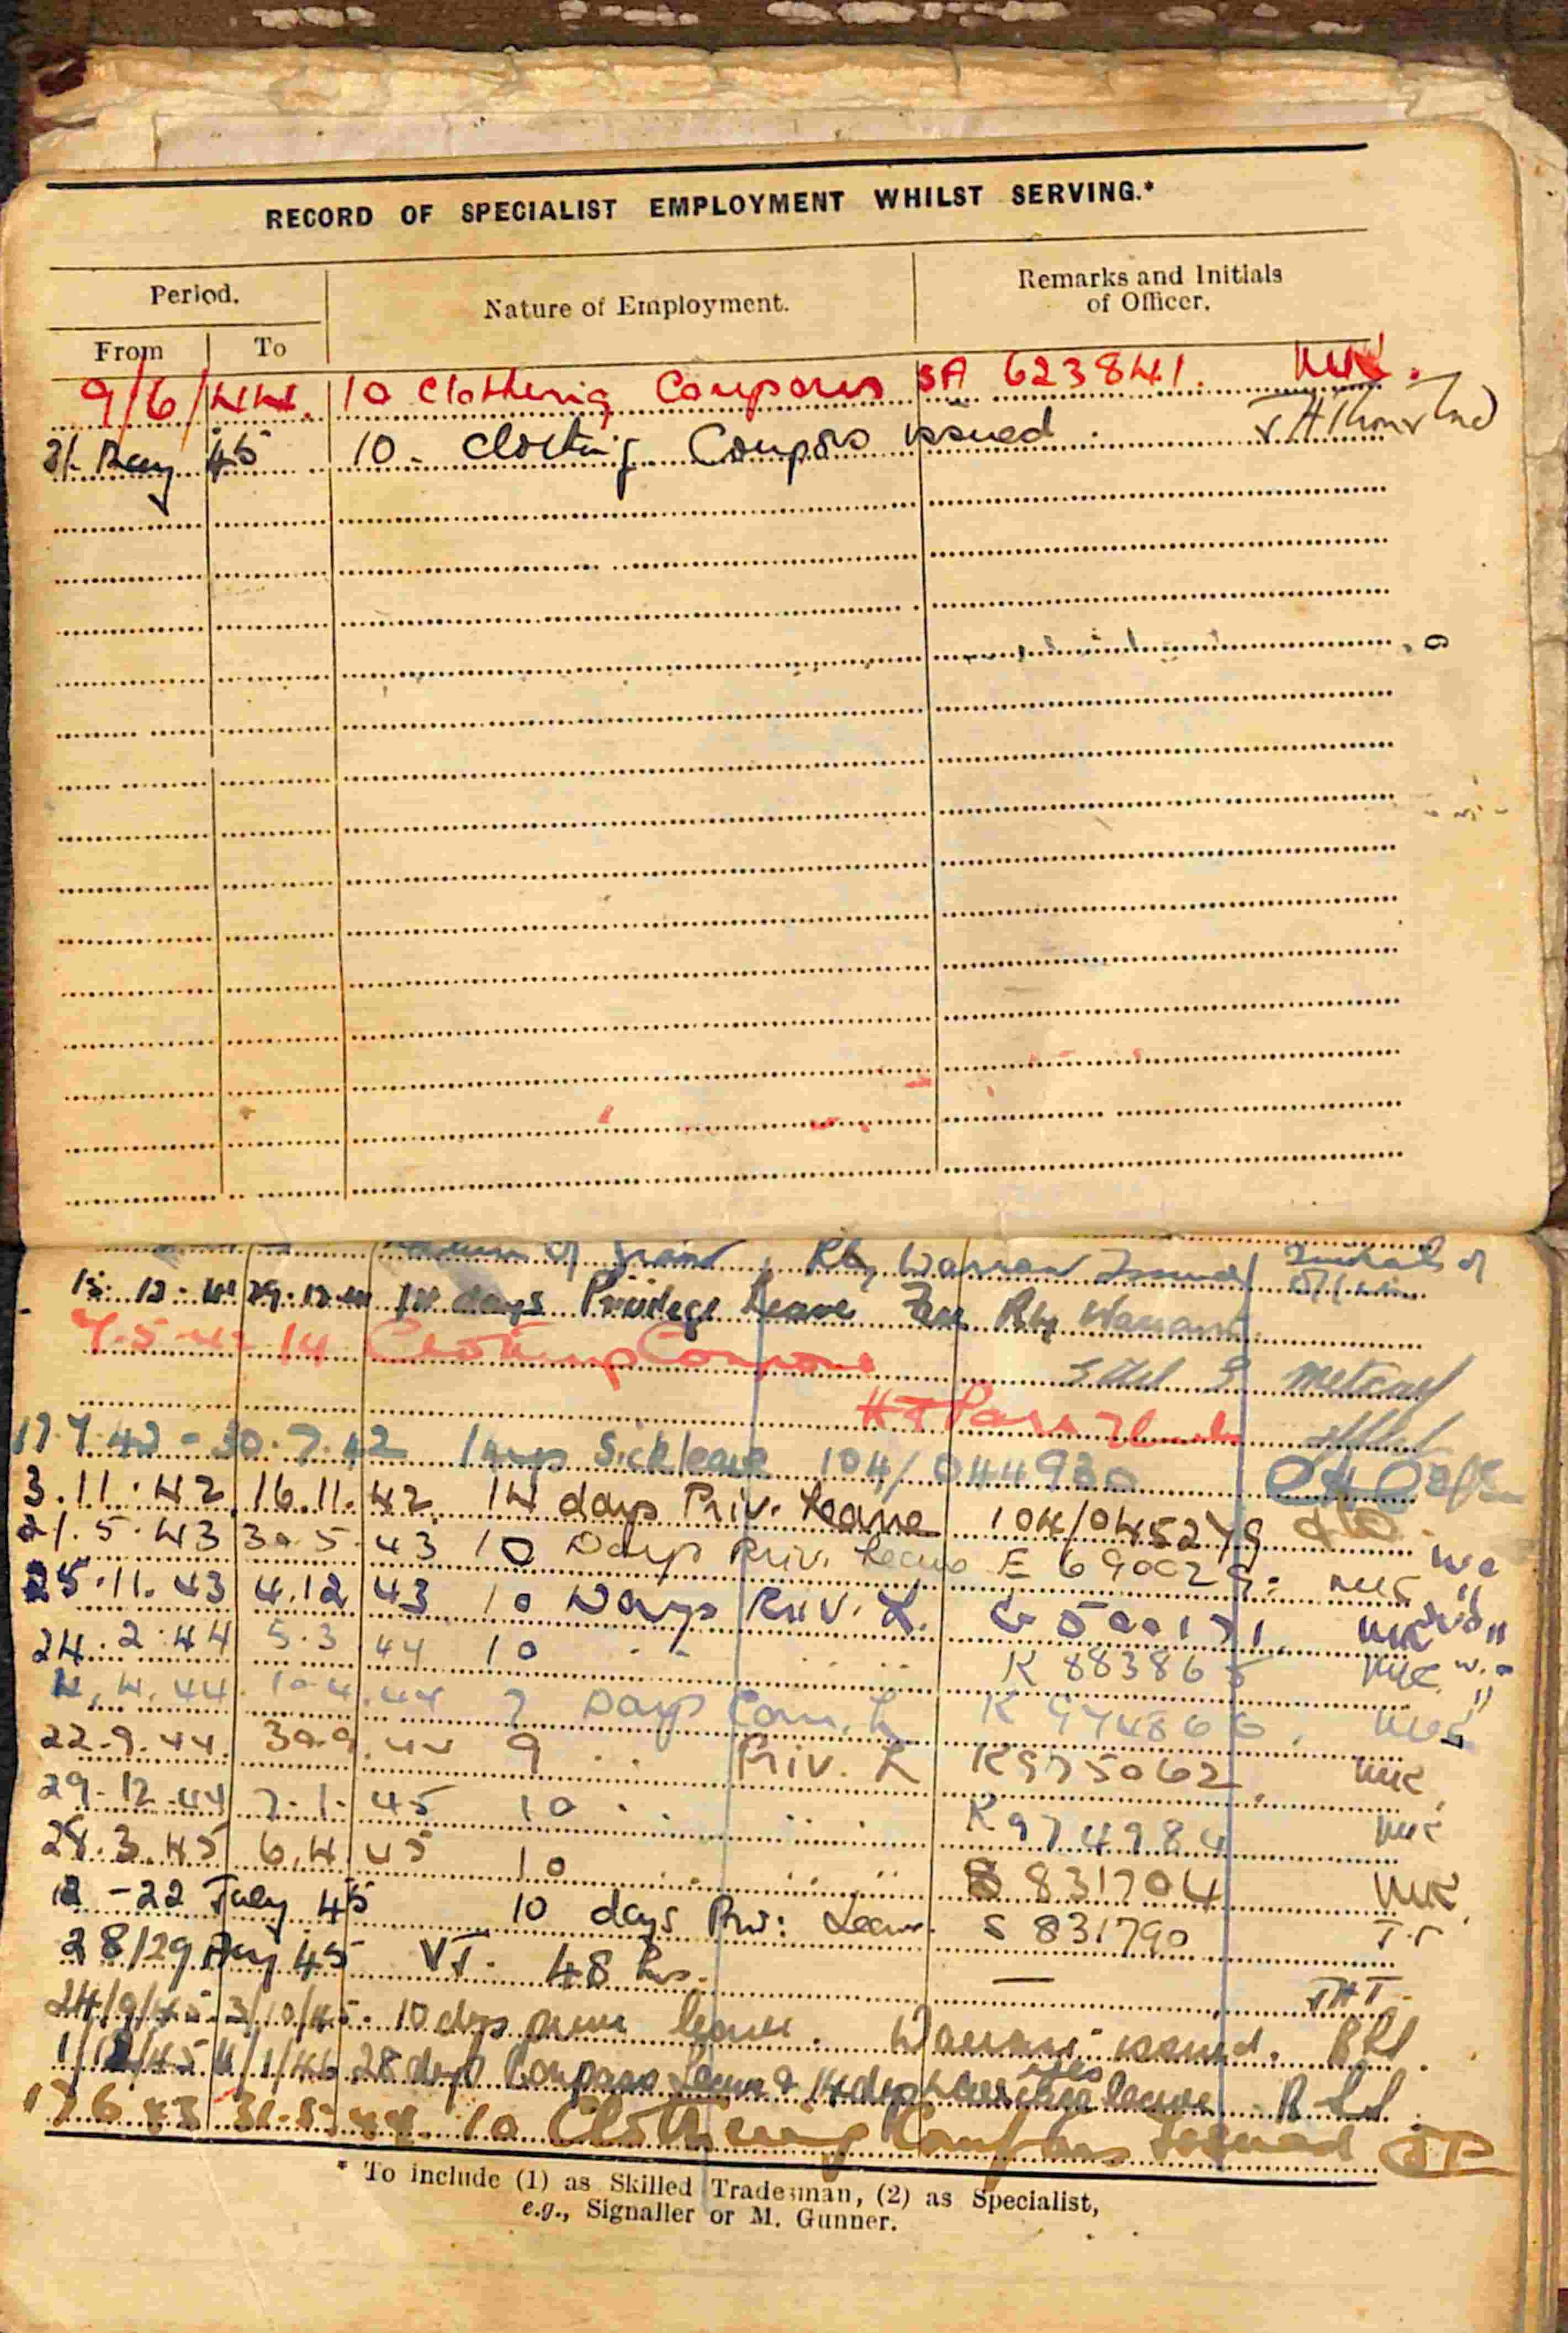 RECORD OF SPECIALIST EMPLOYMENT WHILST SERVING.*
Period.
Nature of Employment.
Remarks and Initials
of Officer.
From To
9/6/44. 10 Clothing Coupons SA 623841. MK.
31 May 45 10 - Clothing Coupons issued.
of Rly Warran Issued Initials of
15.12.41 29.12.41 14 days Privilege Leave Free Rly Warrant.
7.5.42 14 Clothing Coupons
17.7.42 - 30.7.42 14 days Sick leave 104/044930
3.11.42 16.11.42 14 days Priv. Leave 104/045279
21.5.43 30.5.43 10 Days Priv. Leave E 690029
25.11.43 4.12.43 10 Days Priv. L. G 500171 MK
24.2.44 5.3.44 10 " " " K 883865 MK
4.4.44 10.4.44 7 Days Com. L K 974866. MK
22.9.44. 30.9.44 9 .. Priv. L K975062 MK.
29.12.44 7.1.45 10 . . K974984 MK
28.3.45 6.4.45 10 S 831704 MK.
12 - 22 July 45 10 days Priv: Leave. S 831790 T.T
28/29 Aug 45 VJ. 48 hrs. — THT.
24/9/45. 3/10/45. 10 days leave. Warrant issued.
1/12/45 11/1/46 28 days Compass Leave & 14 days leave
17 6 43 31.5.44. 10 Clothing Coupons Issued
* To include (1) as Skilled Tradesman, (2) as Specialist,
e.g., Signaller or M. Gunner.